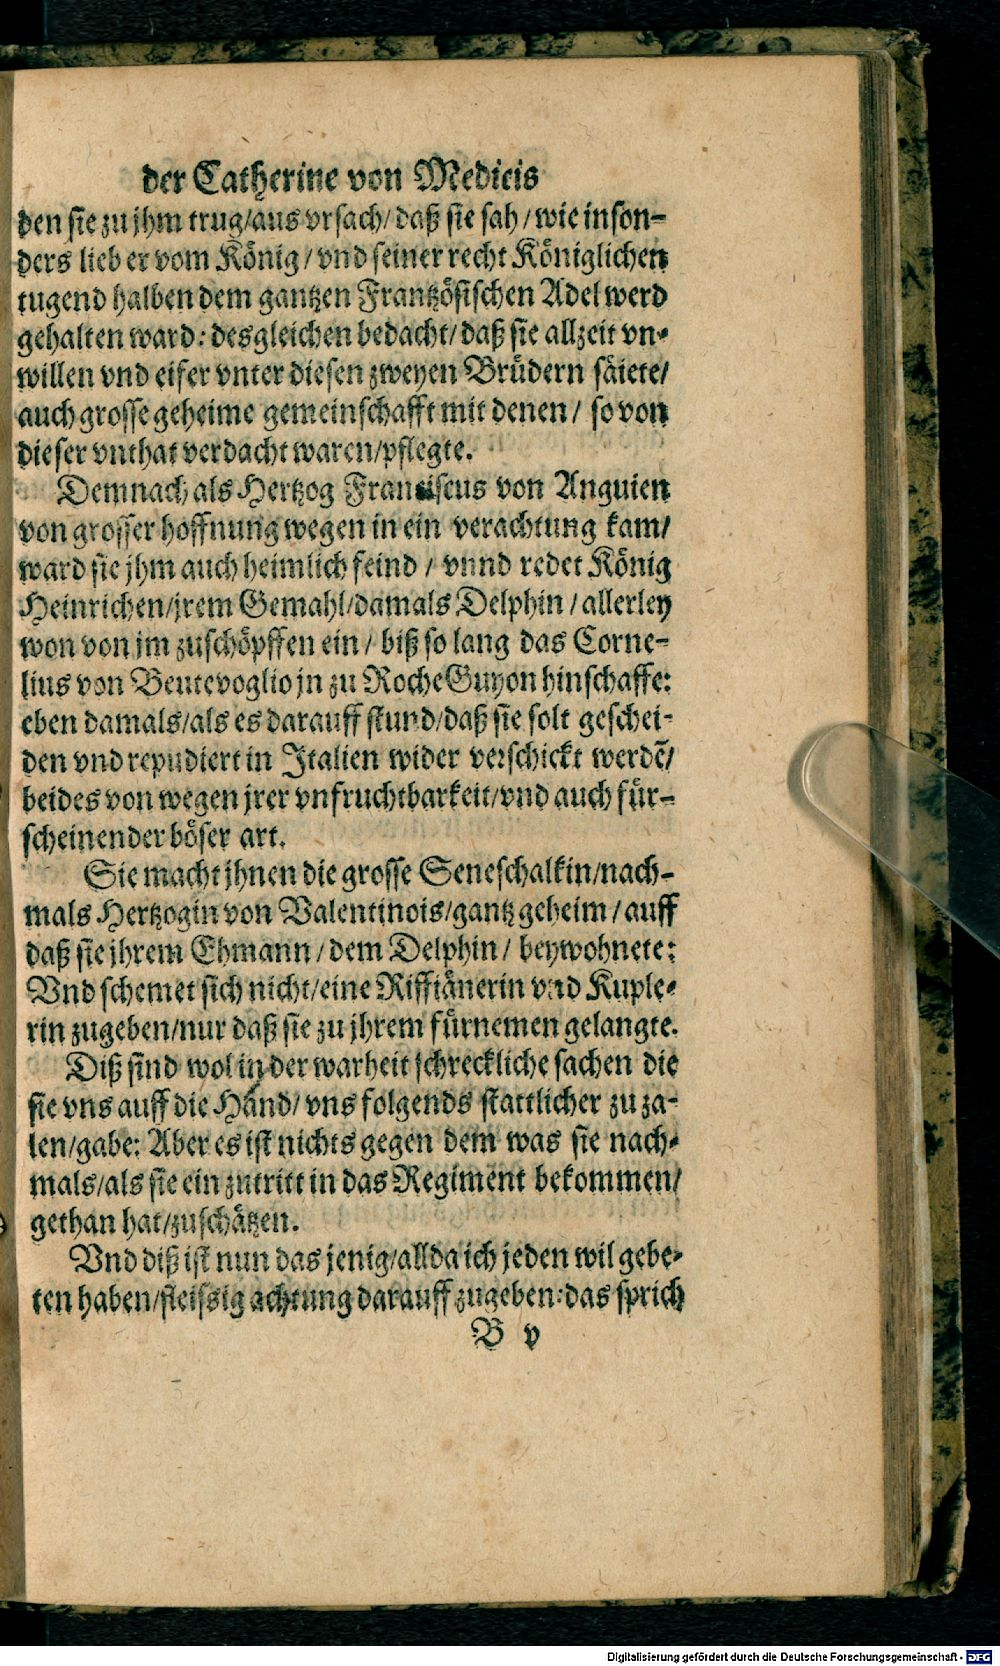 der Catherine von Medicis
den sie zu jhm trug/aus vrsach/daß sie sah/wie inson-
ders lieb er vom König/vnd seiner recht Königlichen
tugend halben dem gantzen Frantzösischen Adel werd
gehalten ward: desgleichen bedacht/daß sie allzeit vn-
willen vnd eifer vnter diesen zweyen Brüdern säiete/
auch grosse geheime gemeinschafft mit denen/ so von
dieser vnthat verdacht waren/pflegte.
Demnach als Hertzog Franciscus von Anguien
von grosser hoffnung wegen in ein verachtung kam/
ward sie jhm auch heimlich feind/ vnnd redet König
Heinrichen/jrem Gemahl/damals Delphin/allerley
won von jm zuschöpffen ein/ biß so lang das Corne-
lius von Bentevoglio jn zu RocheGuyon hinschaffe:
eben damals/als es darauff stund/daß sie solt geschei-
den vnd repudiert in Italien wider verschickt werdē/
beides von wegen jrer vnfruchtbarkeit/vnd auch für-
scheinender böser art.
Sie macht jhnen die grosse Seneschalkin/nach-
mals Hertzogin von Valentinois/gantz geheim/auff
daß sie jhrem Ehmann/dem Delphin/ beywohnete:
Vnd schemet sich nicht/eine Riffiänerin vnd Kuple-
rin zugeben/nur daß sie zu jhrem fürnemen gelangte.
Diß sind wol in der warheit schreckliche sachen die
sie vns auff die Hånd/vns folgends stattlicher zu za-
len/gabe: Aber es ist nichts gegen dem was sie nach-
mals/als sie ein zutritt in das Regiment bekommen/
gethan hat/zuschätzen.
Vnd diß ist nun das jenig/allda ich jeden wil gebe-
ten haben/fleissig achtung darauff zugeben:das sprich
B v
Digitalisierung gefördert durch die Deutsche Forschungsgemeinschaft - DFG